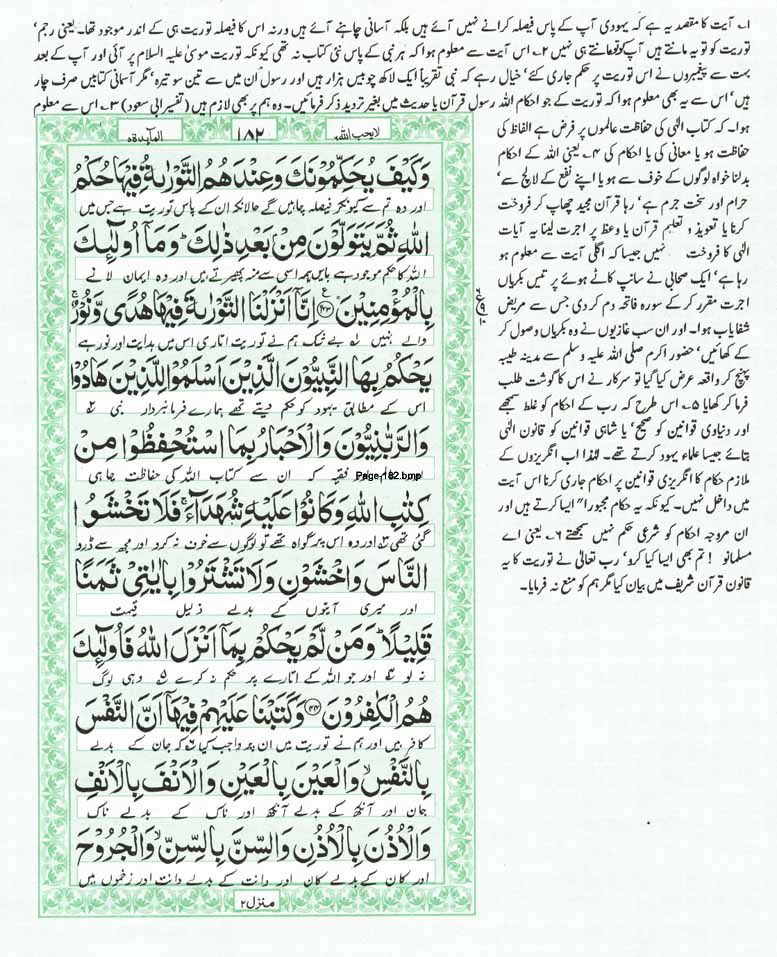 ۱۔ آیت کا مقصد یہ ہے کہ یہودی آپ کے پاس فیصلہ کرانے نہیں آئے ہیں بلکہ آسانی چاہنے آئے ہیں ورنہ اس کا فیصلہ توریت ہی کے اندر موجود تھا۔ یعنی رجم'
توریت کو تو یہ مانتے ہیں آپ کو تو مانتے ہی نہیں ۲۔ اس آیت سے معلوم ہوا کہ ہر نبی کے پاس نئی کتاب نہ تھی کیونکہ توریت موسیٰ علیہ السلام پر آئی اور آپ کے بعد
بہت سے پیغمبروں نے اس توریت پر حکم جاری کئے' خیال رہے کہ نبی تقریباً ایک لاکھ چوبیس ہزار ہیں اور رسول ان میں سے تین سو تیرہ' مگر آسمانی کتابیں صرف چار
ہیں' اس سے یہ بھی معلوم ہوا کہ توریت کے جو احکام اللہ رسول قرآن یا حدیث میں بغیر تردید ذکر فرمائیں۔ وہ ہم پر بھی لازم ہیں (تفسیر ابی سعود) ۳۔ اس سے معلوم
ہوا۔ کہ کتاب الٰہی کی حفاظت عالموں پر فرض ہے الفاظ کی
حفاظت ہو یا معانی کی یا احکام کی ۴۔ یعنی اللہ کے احکام
بدلنا خواہ لوگوں کے خوف سے ہو یا اپنے نفع کے لالچ سے'
حرام اور سخت جرم ہے' رہا قرآن مجید چھاپ کر فروخت
کرنا یا تعویذ و تعلیم قرآن یا وعظ پر اجرت لینا یہ آیات
الٰہی کا فروخت نہیں جیسا کہ اگلی آیت سے معلوم ہو
رہا ہے' ایک صحابی نے سانپ کاٹے ہوئے پر تیس بکریاں
اجرت مقرر کر کے سورہ فاتحہ دم کر دی جس سے مریض
شفایاب ہوا۔ اور ان سب غازیوں نے وہ بکریاں وصول کر
کے کھائیں' حضور اکرم صلی اللہ علیہ وسلم سے مدینہ طیبہ
پہنچ کر واقعہ عرض کیا گیا تو سرکار نے اس کا گوشت طلب
فرما کر کھایا ۵۔ اس طرح کہ رب کے احکام کو غلط سمجھے
اور دنیاوی قوانین کو صحیح' یا شاہی قوانین کو قانون الٰہی
بتائے جیسا علماء یہود کرتے تھے۔ لہٰذا اب انگریزوں کے
ملازم حکام کا انگریزی قوانین پر احکام جاری کرنا اس آیت
میں داخل نہیں۔ کیونکہ یہ حکام مجبوراً ایسا کرتے ہیں اور
ان مروجہ احکام کو شرعی حکم نہیں سمجھتے ۶۔ یعنی اے
مسلمانو ! تم بھی ایسا کیا کرو' رب تعالیٰ نے توریت کا یہ
قانون قرآن شریف میں بیان کیا مگر ہم کو منع نہ فرمایا۔
لا یحب اللہ ۶
۱۸۲
المآئدۃ ۵
وَكَيْفَ يُحَكِّمُوْنَكَ وَعِنْدَهُمُ التَّوْرٰىةُ فِيْهَا حُكْمُ
اور وہ تم سے کیونکر فیصلہ چاہیں گے حالانکہ ان کے پاس توریت ہے جس میں
اللّٰهِ ثُمَّ يَتَوَلَّوْنَ مِنْۢ بَعْدِ ذٰلِكَ ؕ وَمَاۤ اُولٰٓئِكَ
اللہ کا حکم موجود ہے بایں ہمہ اسی سے منہ پھیرتے ہیں اور وہ ایمان لانے
بِالْمُؤْمِنِيْنَ ﴿۴۳﴾ اِنَّاۤ اَنْزَلْنَا التَّوْرٰىةَ فِيْهَا هُدًى وَّنُوْرٌ ۚ
والے نہیں ۱ بے شک ہم نے توریت اتاری اس میں ہدایت اور نور ہے
يَحْكُمُ بِهَا النَّبِيُّوْنَ الَّذِيْنَ اَسْلَمُوْا لِلَّذِيْنَ هَادُوْا
اس کے مطابق یہود کو حکم دیتے تھے ہمارے فرمانبردار نبی ۲
وَالرَّبّٰنِيُّوْنَ وَالْاَحْبَارُ بِمَا اسْتُحْفِظُوْا مِنْ
فقیہ کہ ان سے کتاب اللہ کی حفاظت چاہی
Page-182.bmp
كِتٰبِ اللّٰهِ وَكَانُوْا عَلَيْهِ شُهَدَآءَ ۚ فَلَا تَخْشَوُا
گئی تھی ۳ اور وہ اس پر گواہ تھے تو لوگوں سے خوف نہ کرو اور مجھ سے ڈرو
النَّاسَ وَاخْشَوْنِ وَلَا تَشْتَرُوْا بِاٰيٰتِيْ ثَمَنًا
اور میری آیتوں کے بدلے ذلیل قیمت
قَلِيْلًا ؕ وَمَنْ لَّمْ يَحْكُمْ بِمَاۤ اَنْزَلَ اللّٰهُ فَاُولٰٓئِكَ
نہ لو ۴ اور جو اللہ کے اتارے پر حکم نہ کرے ۵ وہی لوگ
هُمُ الْكٰفِرُوْنَ ﴿۴۴﴾ وَكَتَبْنَا عَلَيْهِمْ فِيْهَاۤ اَنَّ النَّفْسَ
کافر ہیں اور ہم نے توریت میں ان پر واجب کیا ۶ کہ جان کے بدلے
بِالنَّفْسِ ۙ وَالْعَيْنَ بِالْعَيْنِ وَالْاَنْفَ بِالْاَنْفِ
جان اور آنکھ کے بدلے آنکھ اور ناک کے بدلے ناک
وَالْاُذُنَ بِالْاُذُنِ وَالسِّنَّ بِالسِّنِّ ۙ وَالْجُرُوْحَ
اور کان کے بدلے کان اور دانت کے بدلے دانت اور زخموں میں
منزل ۲